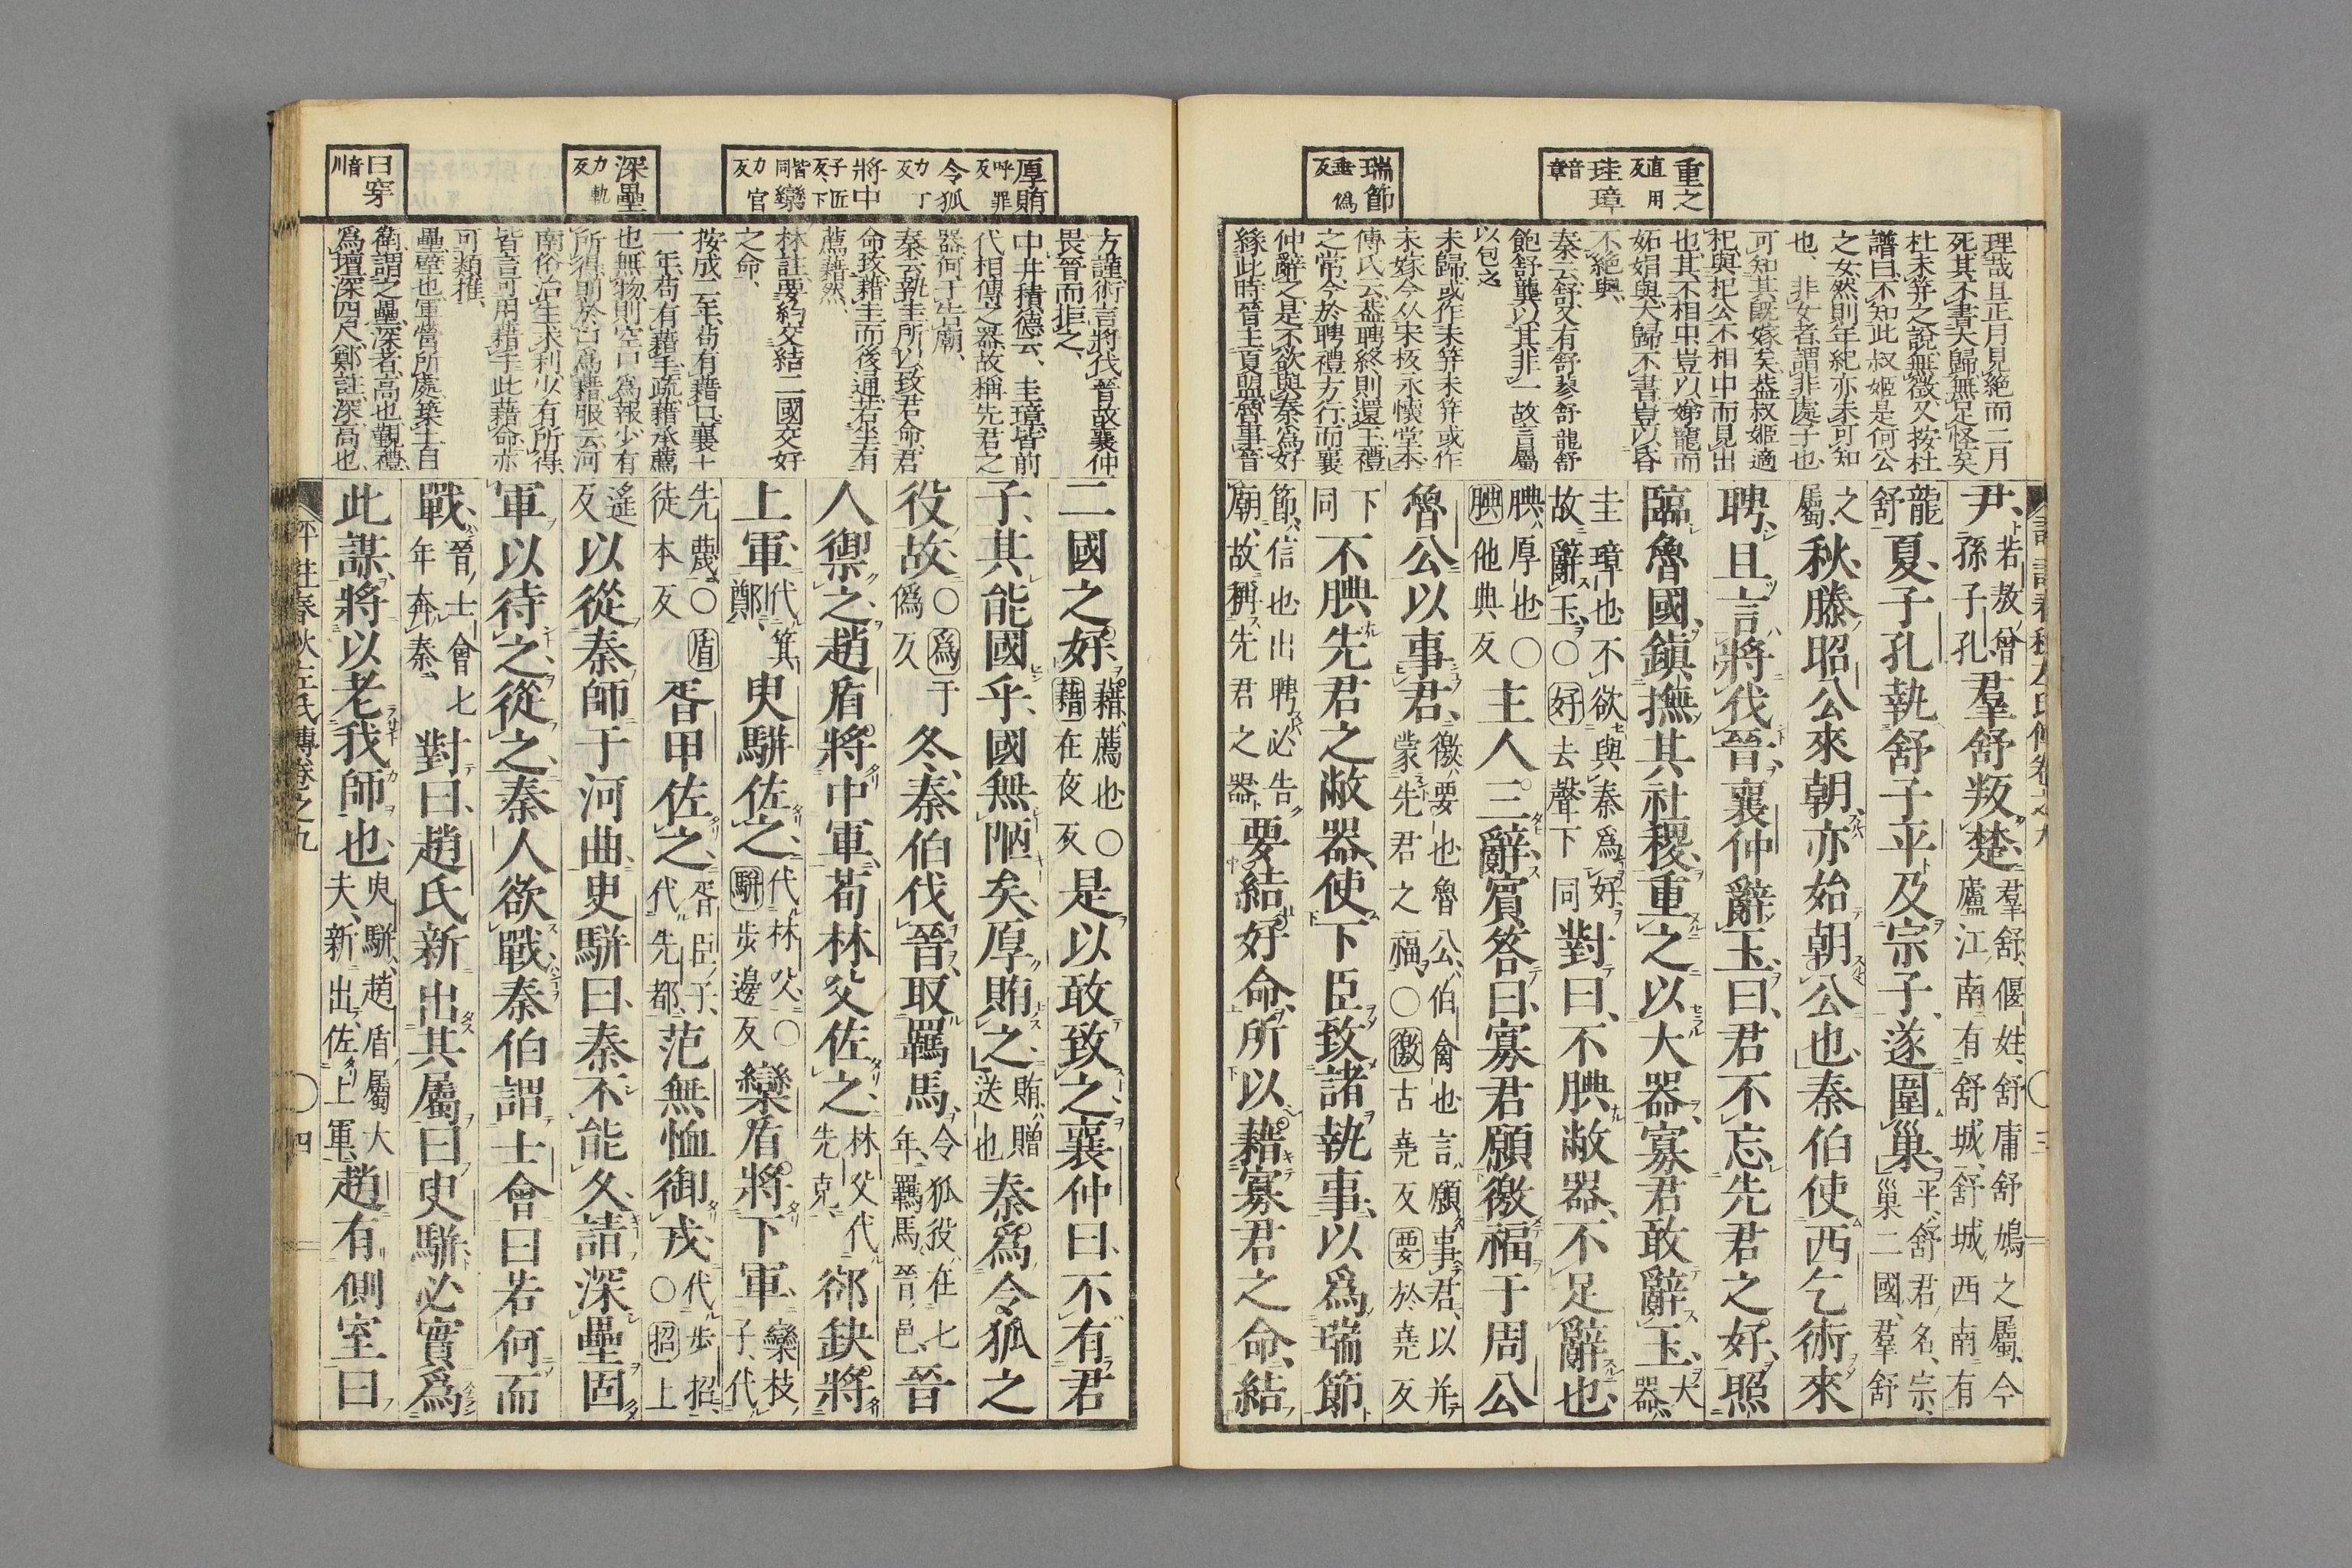 重之 直用反
珪璋 音章
瑞節 垂僞反
理哉且正月見絶而二月
死其不書大歸無足怪矣
杜未笄之說無徵又按杜
譜曰不知此叔姬是何公
之女然則年紀亦未可知
也、非女者謂非處子也
可知其旣嫁矣蓋叔姬適
杞與杞公不相中而見出
也其不相中豈以嫋寵而
妬娟與大歸不書豈以昏
不絶與、
秦云舒又有舒蓼舒龍舒
鮑舒龔以其非一故言屬
以包之
未歸或作未笄未笄或作
未嫁今从宋板永懷堂本
傅氏云蓋聘終則還玉禮
之常今於聘禮方行而襄
仲辭之是不欲與秦爲好
緣此時晉主夏盟魯事晉
尹、若敖曾孫子孔羣舒叛楚、羣舒、偃姓、舒庸舒鳩之屬、今廬江南有舒城、舒城西南有
龍舒夏、子孔執舒子平及宗子、遂圍巢、平、舒君名、宗、巢二國、羣舒
之屬、秋、滕昭公來朝、亦始朝公也、秦伯使西乞術來
聘、且言將伐晉、襄仲辭玉、曰、君不忘先君之好、照
臨魯國、鎭撫其社稷、重之以大器、寡君敢辭玉、大器、
圭璋也、不欲與秦爲好故辭玉、〇好去聲下同對曰、不腆敝器、不足辭也、
腆、厚也〇腆他典反主人三辭、賓答曰、寡君願徼福于周公
魯公以事君、徼、要也魯公、伯禽也言願事君、以并蒙先君之福〇徼古堯反要於堯反
下同不腆先君之敝器、使下臣致諸執事、以爲瑞節
節、信也出聘必告廟、故稱先君之器要結好命、所以藉寡君之命、結
厚賄 呼罪反
令狐 力丁反
將中 子匠反下皆同
欒 力官反
深壘 力軌反
曰穿 音川
方謹術言將伐晉故襄仲
畏晉而拒之、
中井積德云、圭璋皆前
代相傳之器故稱先君之
器何于告廟、
秦云執圭所以致君命、君
命致藉圭而後通若坐有
薦藉然、
林註要約交結二國交好
之命、
按成二年、苟有藉口襄十
一年苟有藉手疏藉承薦
也無物則空口爲報少有
所得則於口爲藉服云河
南俗治生求利少有所得
皆言可用藉手此藉命亦
可類推、
壘壁也軍營所處築土自
衛謂之壘深者高也覲禮
爲壇深四尺鄭註深高也
二國之好、藉、薦也〇藉在夜反是以敢致之、襄仲曰、不有君
子、其能國乎、國無陋矣、厚賄之、賄、贈送也秦爲令狐之
役故、〇爲于僞反冬、秦伯伐晉、取羈馬、令狐役、在七年、羈馬、晉邑、晉
人禦之、趙盾將中軍、荀林父佐之、林父代先克、郤缺將
上軍、代箕鄭、臾駢佐之、代林父、〇駢步邊反欒盾將下軍、欒枝子、代
先蔑、〇盾徒本反胥甲佐之、胥臣子、代先都、范無恤御戎、代步招、〇招上
遙反以從秦師于河曲、臾駢曰、秦不能久、請深壘固
軍以待之、從之、秦人欲戰、秦伯謂士會曰若何而
戰、晉士會七年奔秦、對曰、趙氏新出其屬曰臾駢、必實爲
此謀、將以老我師也、臾駢、趙盾屬大夫、新出、佐上軍、趙有側室曰
評註春秋左氏傳卷之九
四